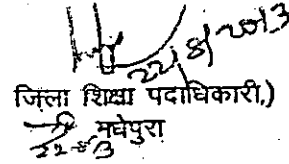 22/8/2013
जिला शिक्षा पदाधिकारी,)
मधेपुरा